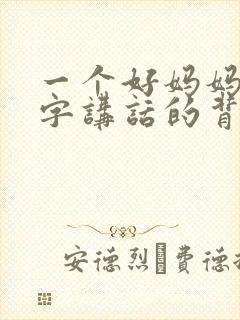 一个好妈妈
字講話的背
安德烈·費德